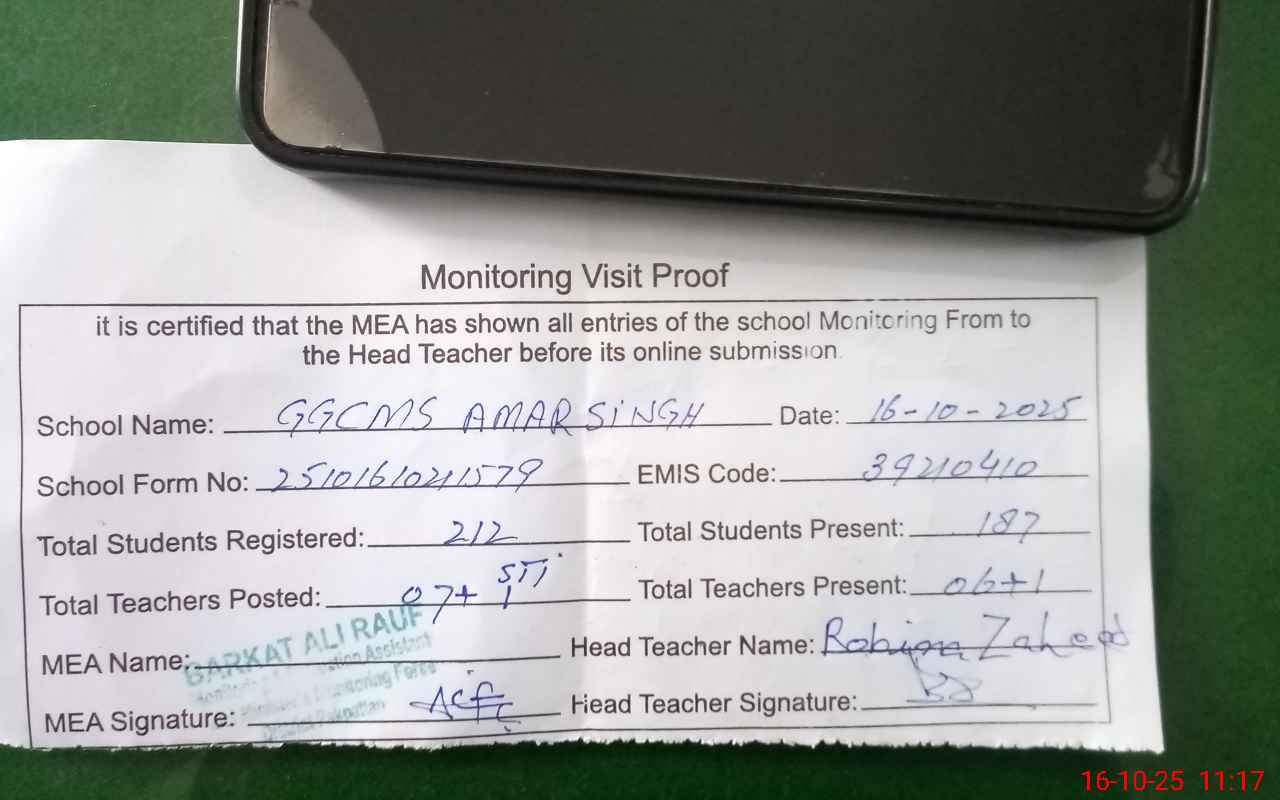 Monitoring Visit Proof
it is certified that the MEA has shown all entries of the school Monitoring From to
the Head Teacher before its online submission.
School Name: GGCMS AMAR SINGH Date: 16-10-2025
School Form No: EMIS Code: 39210410
Total Students Registered: 212 Total Students Present: 187
Total Teachers Posted: 07+1 STI Total Teachers Present: 06+1
MEA Name: BARKAT ALI RAUF Head Teacher Name: Robina Zaheed
Monitoring Force
MEA Signature: Head Teacher Signature:
Pakpattan
16-10-25 11:17